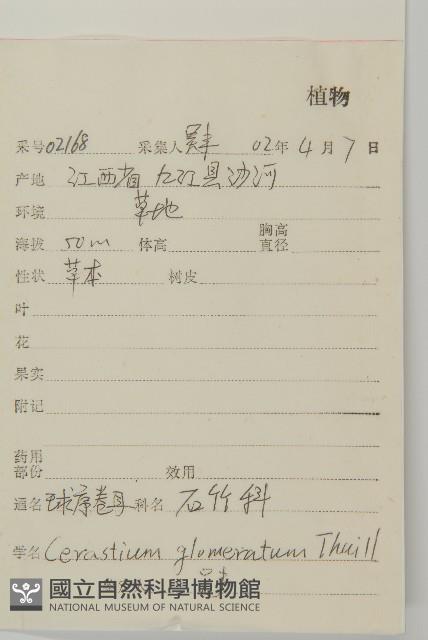 植物
采号02168 采集人 02年4月7日
产地 江西省九江县沙河
环境 草地
海拔 50m 体高 胸高直径
性状 草本 树皮
叶
花
果实
附记
药用部份 效用
通名球序卷耳科名 石竹科
学名Cerastium glomeratum Thuill
國立自然科學博物館
NATIONAL MUSEUM OF NATURAL SCIENCE